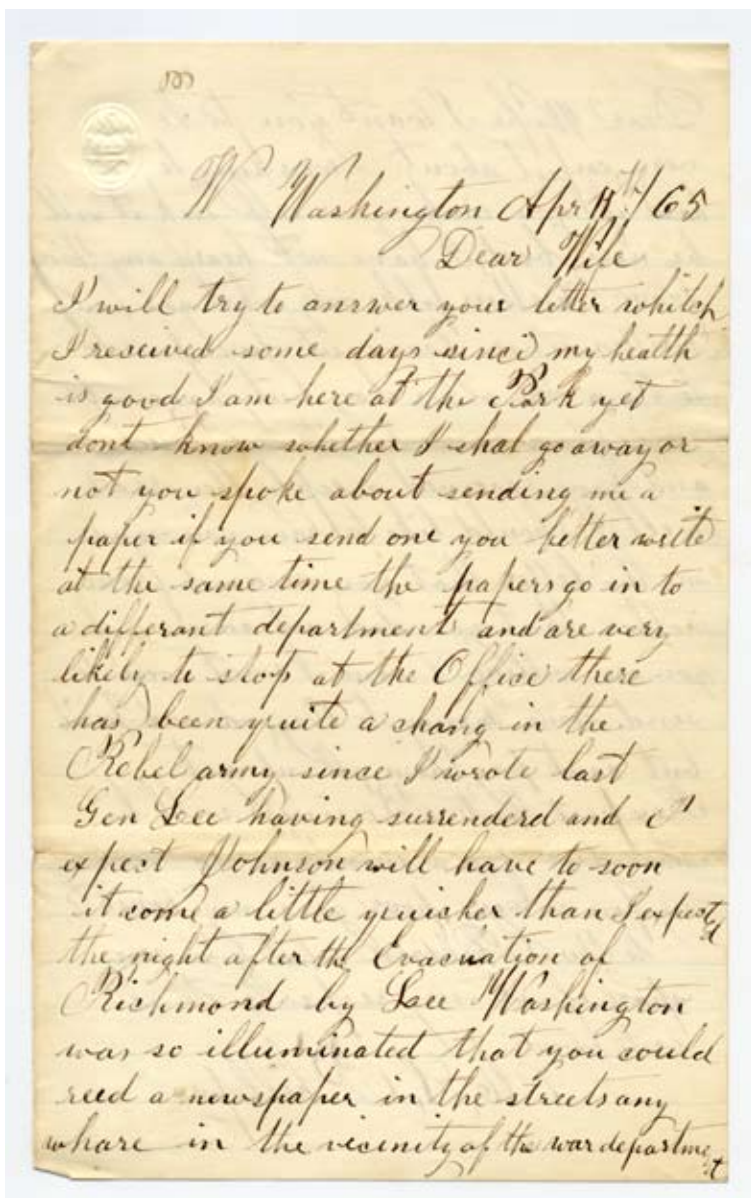 W Washington Apr 11th/65
Dear Wife
I will try to answer your letter whitch
I received some days since my health
is good I am here at the Park yet
dont know whether I shal go away or
not you spoke about sending me a
paper if you send one you better write
at the same time the papers go in to
a differant department and are very
likely to stop at the Office there
has been quite a chang in the
Rebel army since I wrote last
Gen Lee having surrenderd and I
expect Johnson will have to soon
it come a little quicker than I expected
the night after the Evacuation of
Richmond by Lee Washington
was so illuminated that you could
reed a newspaper in the streets any
whare in the vicinity of the war department